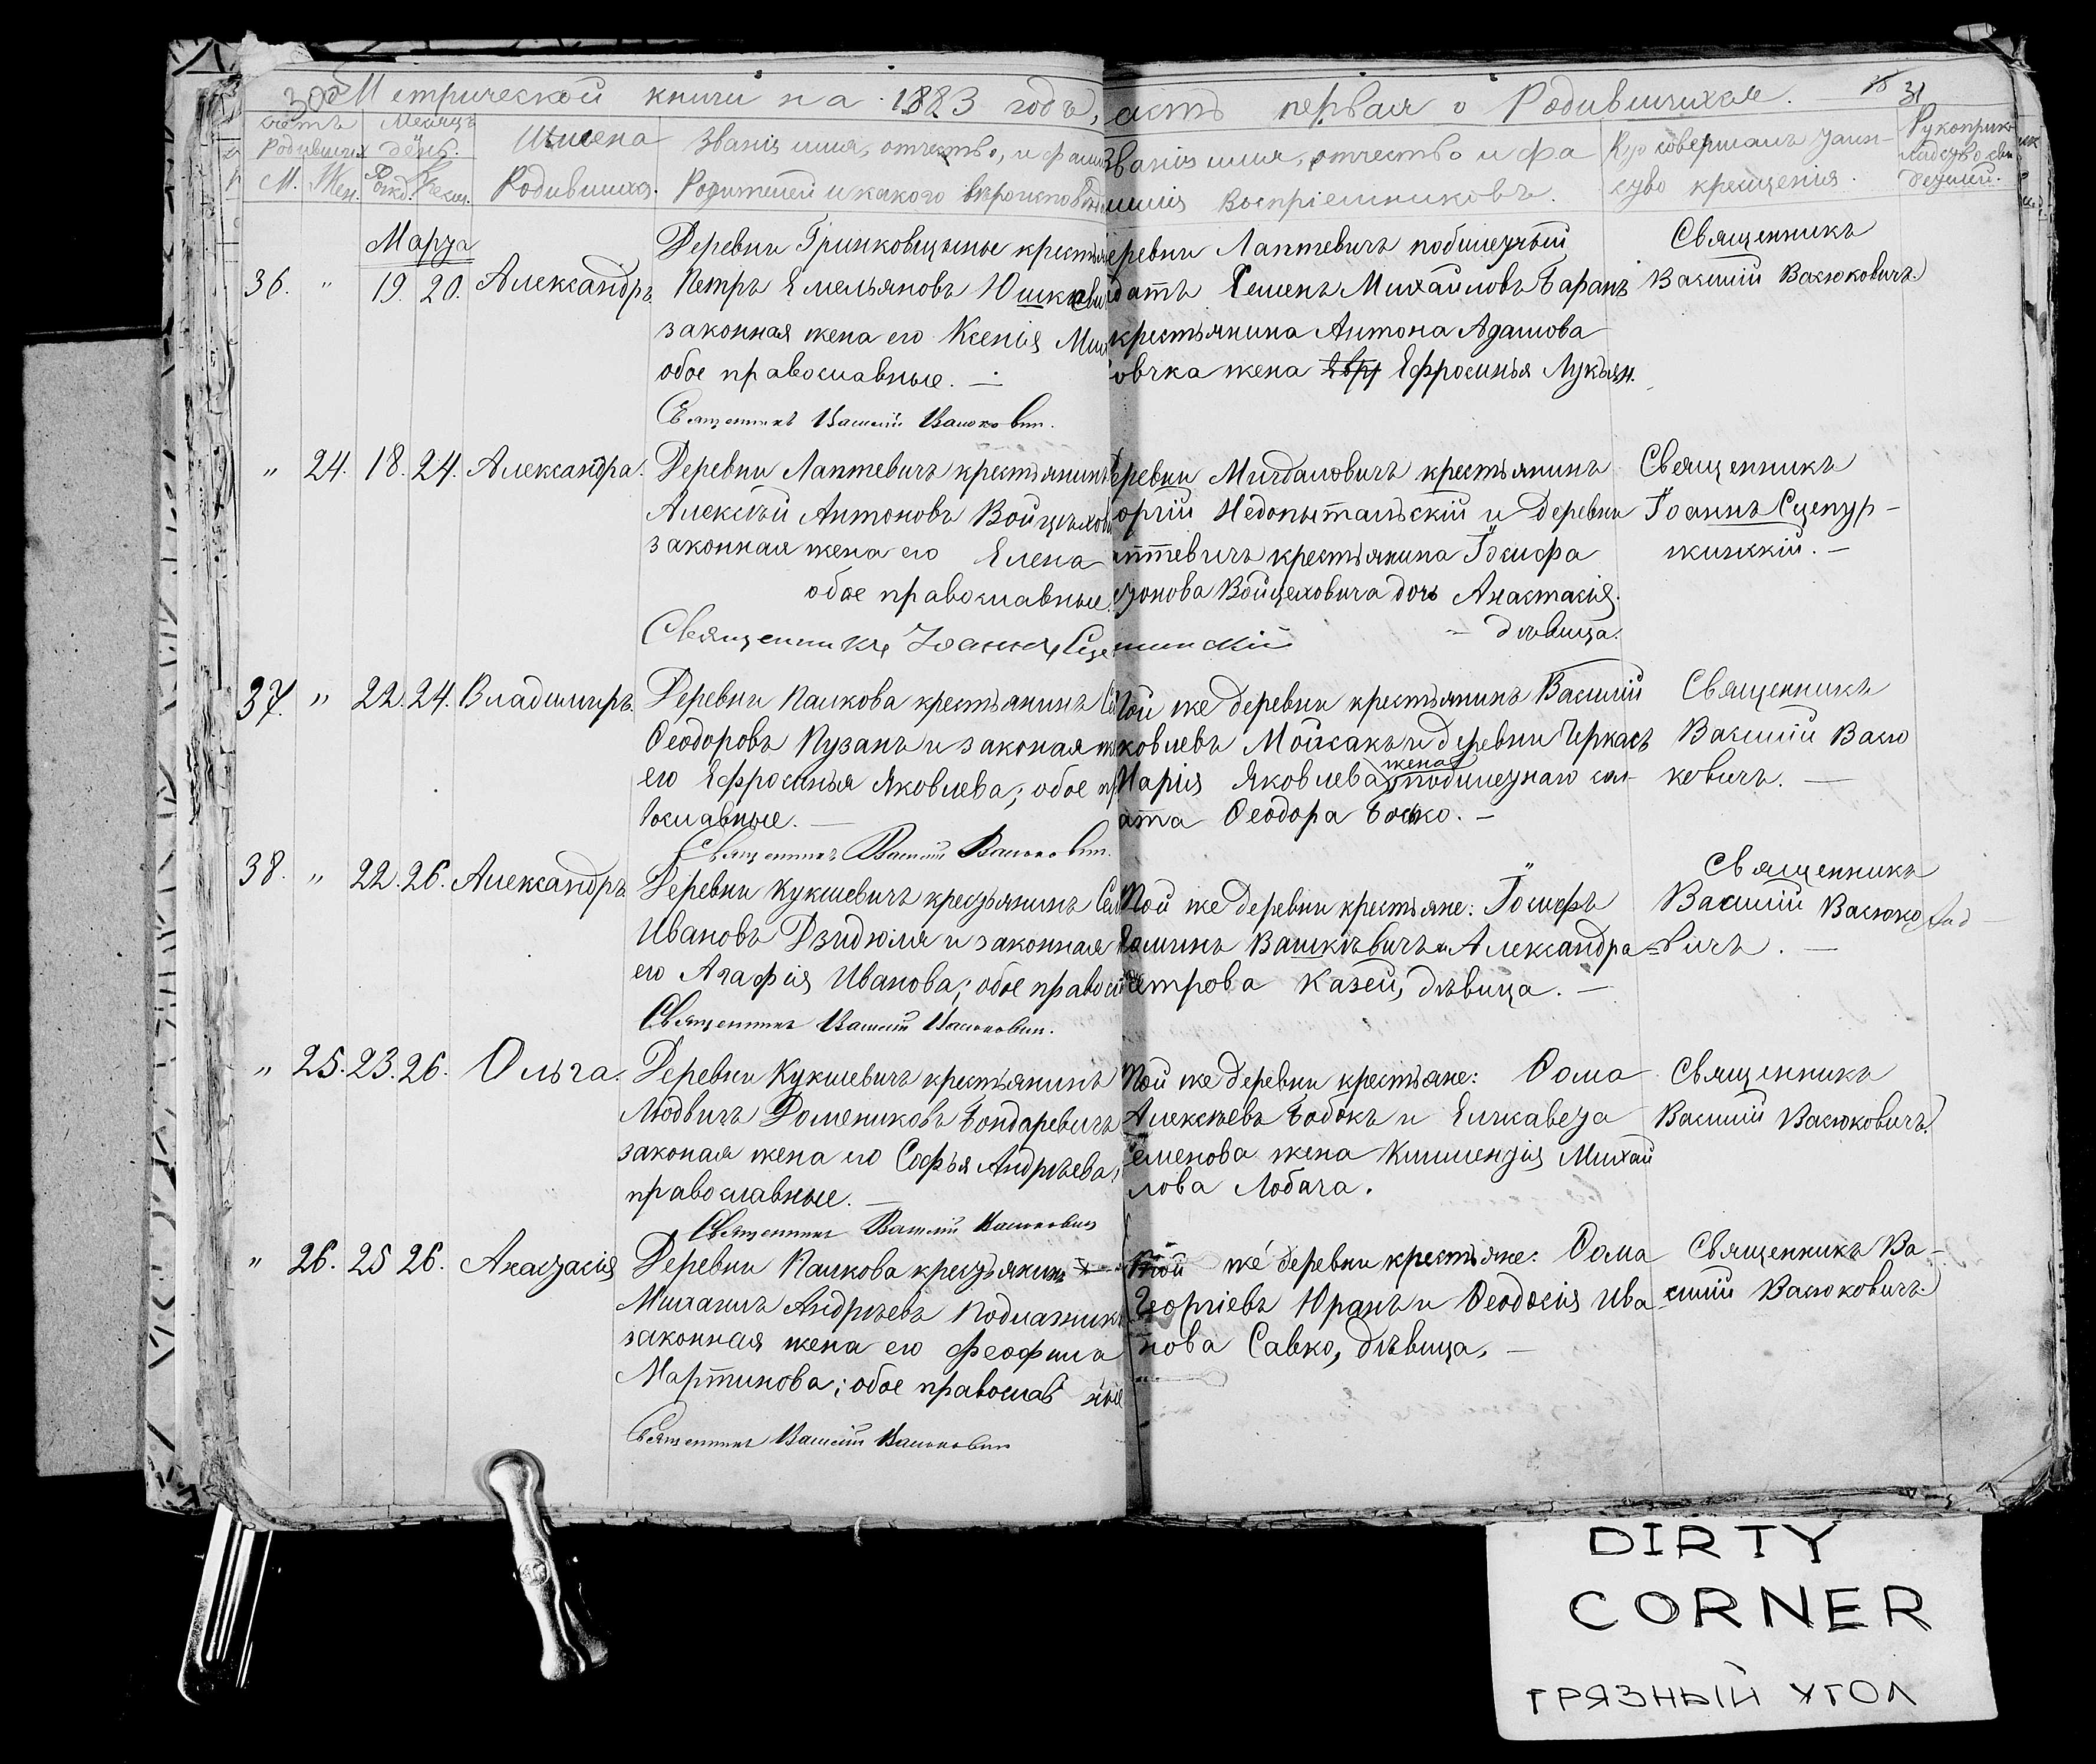 30 Метрической книги на 1883 годъ,
асть первая о Родившихся. 31
счетъ Родившихся
Мѣсяцъ день.
М. Жен. Рожд. Крещ.
Имена Родившихся.
Званіе имя, отчество, и фами
Родителей и какого вѣроисповѣд
Званіе имя, отчество и фа
милія Воспріемниковъ.
Кто совершалъ таин-
ство крещенія.
Рукоприк
ладство сви
детелей.
Марта
36. " 19. 20. Александръ
Деревни Гринковщизны крестья
Петръ Емельяновъ Юшкеви
законная жена его Ксенія Ми
обое православные. —
Священникъ Василій Васюкович.
еревни Лаптевичъ побилетный
датъ Семенъ Михайловъ Баранъ
крестьянина Антона Адамова
овчка жена Евр Ефросинья Лукьян.
Священникъ
Василій Васюковичъ.
" 24. 18. 24. Александра.
Деревни Лаптевичъ крестьянинъ
Алексѣй Антоновъ Войцехов
законная жена его Елена
обое православные.
Священникъ Іоаннъ Сце
еревни Мигдаловичъ крестьянинъ
оргій Недопытальскій и деревни
аптевичъ крестьянина Іосифа
тонова Войцеховича дочь Анастасія.
— дѣвица.
Священникъ
Іоаннъ Сцепур-
жинскій. —
37. " 22. 24. Владимиръ.
Деревни Палкова крестьянинъ
Ѳеодоровъ Пузанъ и законая ж
его Ефросинья Яковлева; обое пр
вославные. —
Священникъ Василій Васюкович.
Той же деревни крестьянинъ Василій
ковлевъ Мойсакъ и деревни Черкасъ
Марія Яковлева жена побилетнаго сол-
ата Ѳеодора Бочко. —
Священникъ
Василій Васю
ковичъ. —
38. " 22. 26. Александръ
Деревни Кукшевичъ крестьянинъ
Ивановъ Дзидюля и законная
его Агафія Иванова; обое правосл
Священникъ Василій Васюкович.
Той же деревни крестьяне: Іосифъ
Ѳоминъ Вашкѣвичъ и Александра
Петрова Казей, дѣвица. —
Священникъ
Василій Васюко
=вичъ. —
" 25. 23. 26. Ольга.
Деревни Кукшевичъ крестьянинъ
Людвигъ Домениковъ Бондаревичъ
законая жена его Софья Андрѣева;
православные. —
Священникъ Василій Васюкович
Той же деревни крестьяне: Ѳома
Алексѣевъ Бобокъ и Елисавета
Семенова жена Климентія Михай
лова Лобача.
Священникъ
Василій Васюковичъ.
" 26. 25 26. Анастасія
Деревни Палкова крестьянинъ
Михаилъ Андрѣевъ Подлажник
законная жена его Феофила
Мартинова; обое православ ные
Священникъ Василій Васюкович
Той же деревни крестьяне: Ѳома
Георгіевъ Юранъ и Ѳеодосія Ива
нова Савко, дѣвица. —
Священникъ Ва-
силій Васюковичъ.
DIRTY
CORNER
ГРЯЗНЫЙ УГОЛ